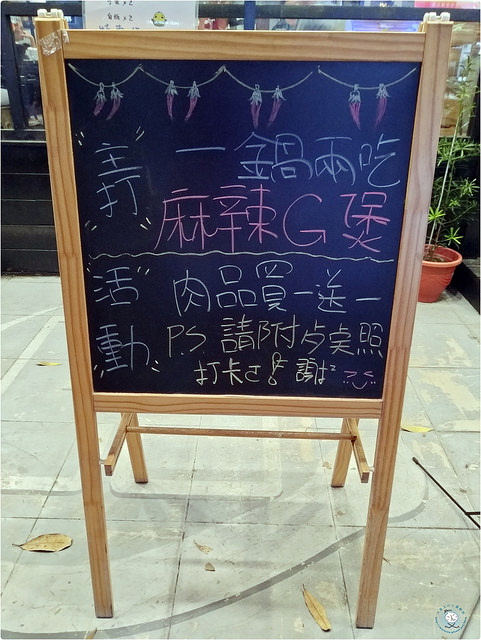 主打 一鍋兩吃
麻辣G煲
活動 肉品買一送一
PS 請附上美照
打卡